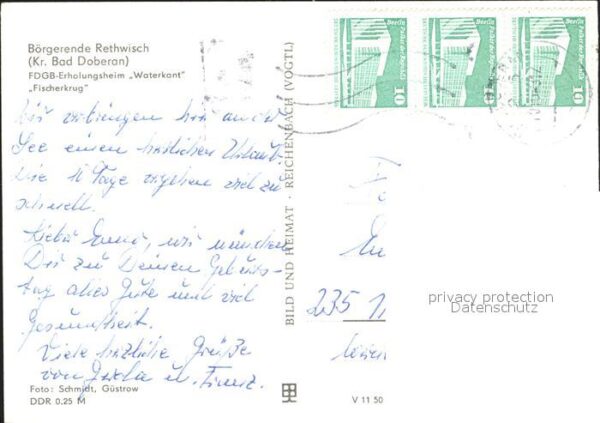 Börgerende Rethwisch
(Kr. Bad Doberan)
FDGB-Erholungsheim „Waterkant"
„Fischerkrug"
Wir verbringen hier an der
See einen herrlichen Urlaub.
Die 16 Tage vergehen viel zu
schnell.
Liebe wir wünschen
Dir zu Deinem Geburts-
tag alles Gute und viel
Gesundheit.
Viele herzliche Grüße
von u. Franz.
Foto: Schmidt, Güstrow
DDR 0.25 M
BILD UND HEIMAT · REICHENBACH (VOGTL)
V 11 50
Berlin Palast der Republik
10
Berlin Palast der Republik
10
Berlin Palast der Republik
10
235
privacy protection
Datenschutz